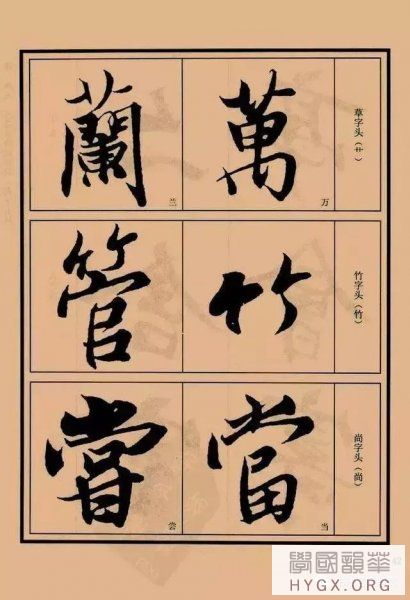 草字头（艹）
萬
万
蘭
兰
竹字头（竹）
竹
管
尚字头（尚）
當
当
嘗
尝
42
華韻國學
HYGX.ORG